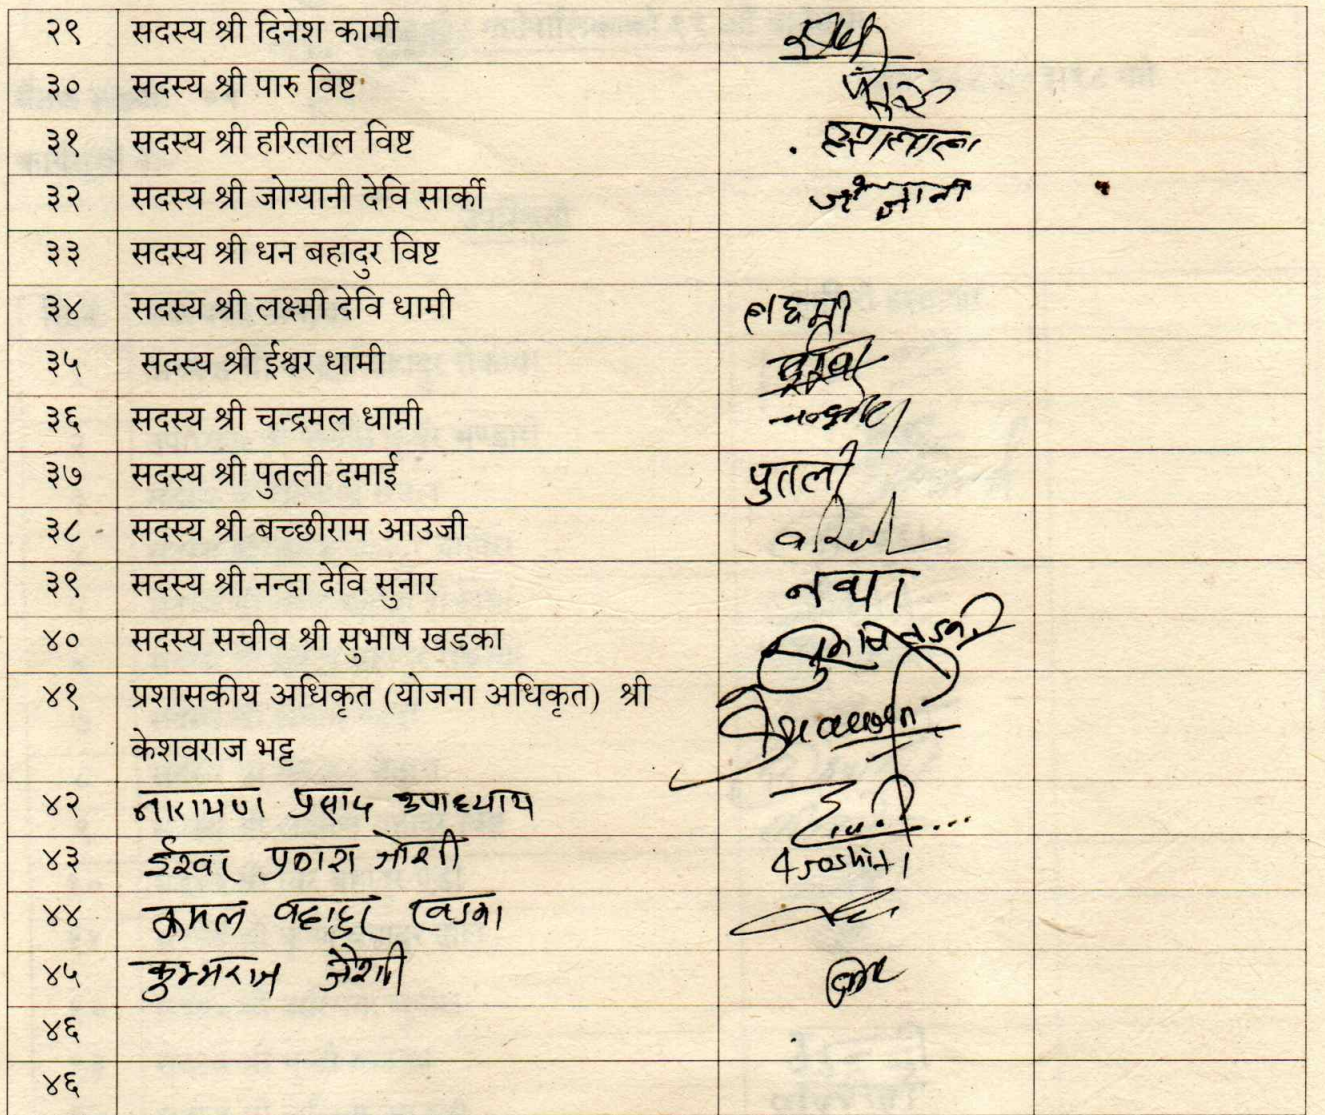 २९ सदस्य श्री दिनेश कामी
३० सदस्य श्री पारु विष्ट
३१ सदस्य श्री हरिलाल विष्ट
३२ सदस्य श्री जोग्यानी देवि सार्की
३३ सदस्य श्री धन बहादुर विष्ट
३४ सदस्य श्री लक्ष्मी देवि धामी लक्ष्मी
३५ सदस्य श्री ईश्वर धामी
३६ सदस्य श्री चन्द्रमल धामी
३७ सदस्य श्री पुतली दमाई पुतली
३८ सदस्य श्री बच्छीराम आउजी
३९ सदस्य श्री नन्दा देवि सुनार
४० सदस्य सचीव श्री सुभाष खडका
४१ प्रशासकीय अधिकृत (योजना अधिकृत) श्री
केशवराज भट्ट
४२ नारायण प्रसाद उपाध्याय
४३ ईश्वर प्रकाश जोशी
४४ कमल बहादुर खडका
४५ कुम्भराज जैशी
४६
४६